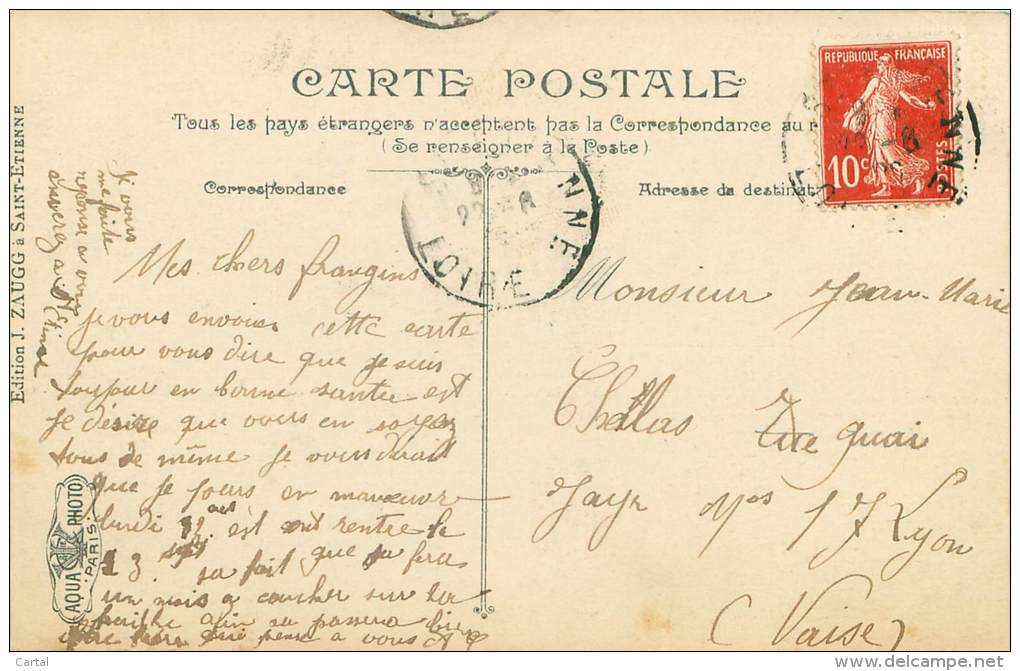 CARTE POSTALE
Tous les pays étrangers n'acceptent pas la Correspondance au
(Se renseigner à la Poste)
Correspondance
Adresse du destinat
REPUBLIQUE FRANÇAISE
10c
POSTES
LOIRE
Edition J. ZAUGG à SAINT-ETIENNE
AQUA PHOTO
PARIS
Je vous
reponse a vous
Mes chers frangins
je vous envoie cette carte
pour vous dire que je suis
toujour en bonne santée et
je désire que vous en soyez
tous de même je vous dirait
que je pours en manœuvre
lundi est rentre le
23 sa fait que sa fera
un mois a coucher sur la
paille afin sa passera bien
votre frère qui pense a vous
Monsieur Jean-Marie
Chillas quai
Jayr N°s 17 Lyon
(Vaise)
Cartal
www.delcampe.net